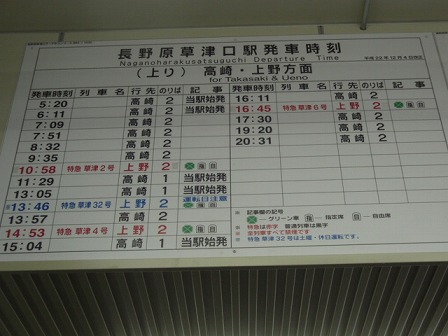 長野原草津口駅発車時刻
Naganoharakusatsuguchi Departure Time
平成22年12月4日改正
(上り) 高崎・上野方面
for Takasaki & Ueno
発車時刻 列車名 行先 のりば 記事
5:20 高崎 2 当駅始発
6:11 高崎 2
7:09 高崎 2
7:51 高崎 2
8:32 高崎 2
9:35 高崎 2
10:58 特急 草津2号 上野 2 指 自
11:29 高崎 1 当駅始発
13:05 高崎 1 当駅始発
※13:46 特急 草津32号 上野 2 運転日注意 指 自
13:57 高崎 2
14:53 特急 草津4号 上野 2 指 自
15:04 高崎 1 当駅始発
発車時刻 列車名 行先 のりば 記事
16:11 高崎 2
16:45 特急 草津6号 上野 2 指 自
17:30 高崎 2
19:20 高崎 2
20:31 高崎 2
※ 記事欄の記号
―グリーン車 指―指定席 自―自由席
※ 特急は赤字 普通列車は黒字
※ 全列車すべて禁煙です
※ 特急 草津32号は土曜・休日運転です。